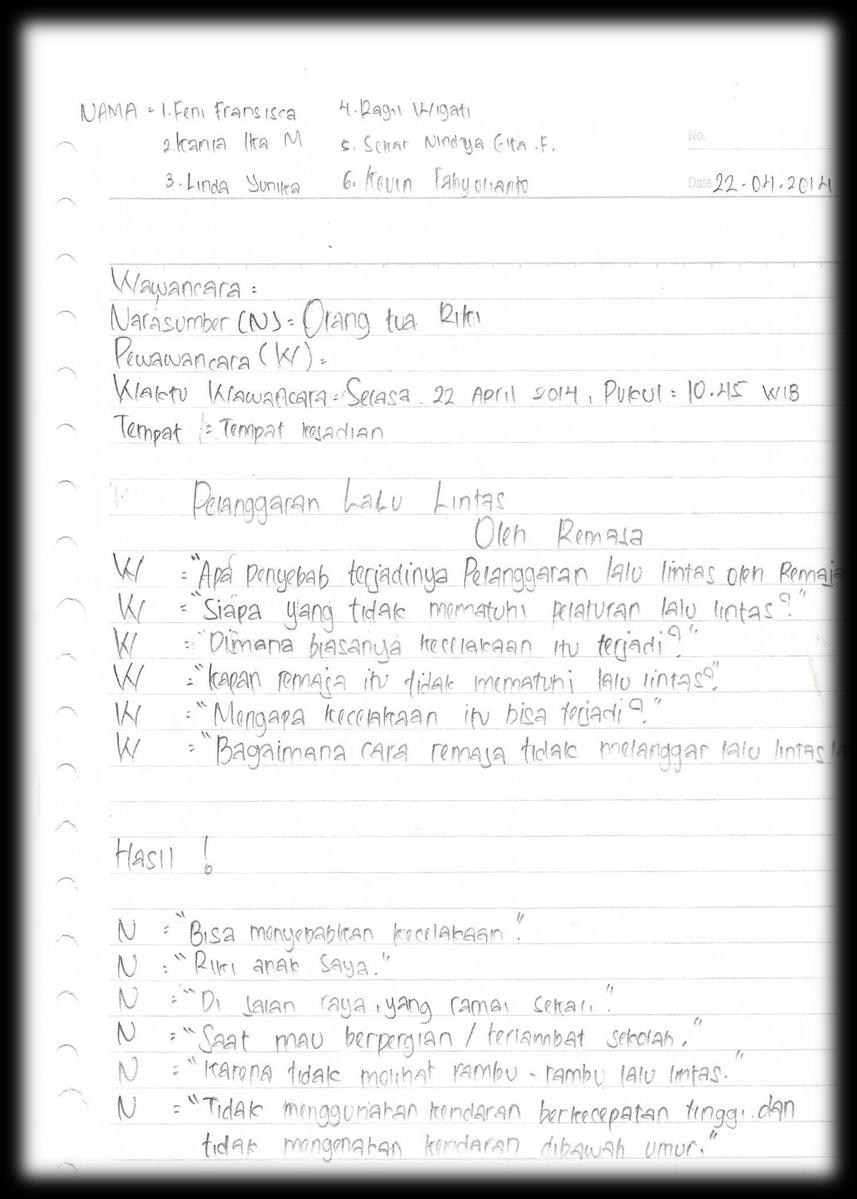 NAMA = 1. Feni Fransisca 4. Ragil Wigati
2. Kania Ika M 5. Sekar Nindya Gita .F.
3. Linda Yunika 6. Kevin
No.
Date 22-04-2014
Wawancara :
Narasumber (N) = Orang tua Riki
Pewawancara (W) =
Waktu Wawancara = Selasa. 22 April 2014, Pukul : 10.45 WIB
Tempat = Tempat kejadian
Pelanggaran Lalu Lintas
Oleh Remaja
W = "Apa penyebab terjadinya Pelanggaran lalu lintas oleh Remaja
W = "Siapa yang tidak mematuhi pelaturan lalu lintas?"
W = "Dimana biasanya kecelakaan itu terjadi?"
W = "Kapan remaja itu tidak mematuhi lalu lintas?"
W = "Mengapa kecelakaan itu bisa terjadi?."
W = "Bagaimana cara remaja tidak melanggar lalu lintas
Hasil !
N = "Bisa menyebabkan kecelakaan".
N = "Riki anak saya."
N = "Di jalan raya, yang ramai sekali".
N = "Saat mau berpergian / terlambat sekolah."
N = "Karena tidak melihat rambu-rambu lalu lintas."
N = "Tidak menggunakan kendaran berkecepatan tinggi. dan
tidak mengenakan kendaran dibawah umur."